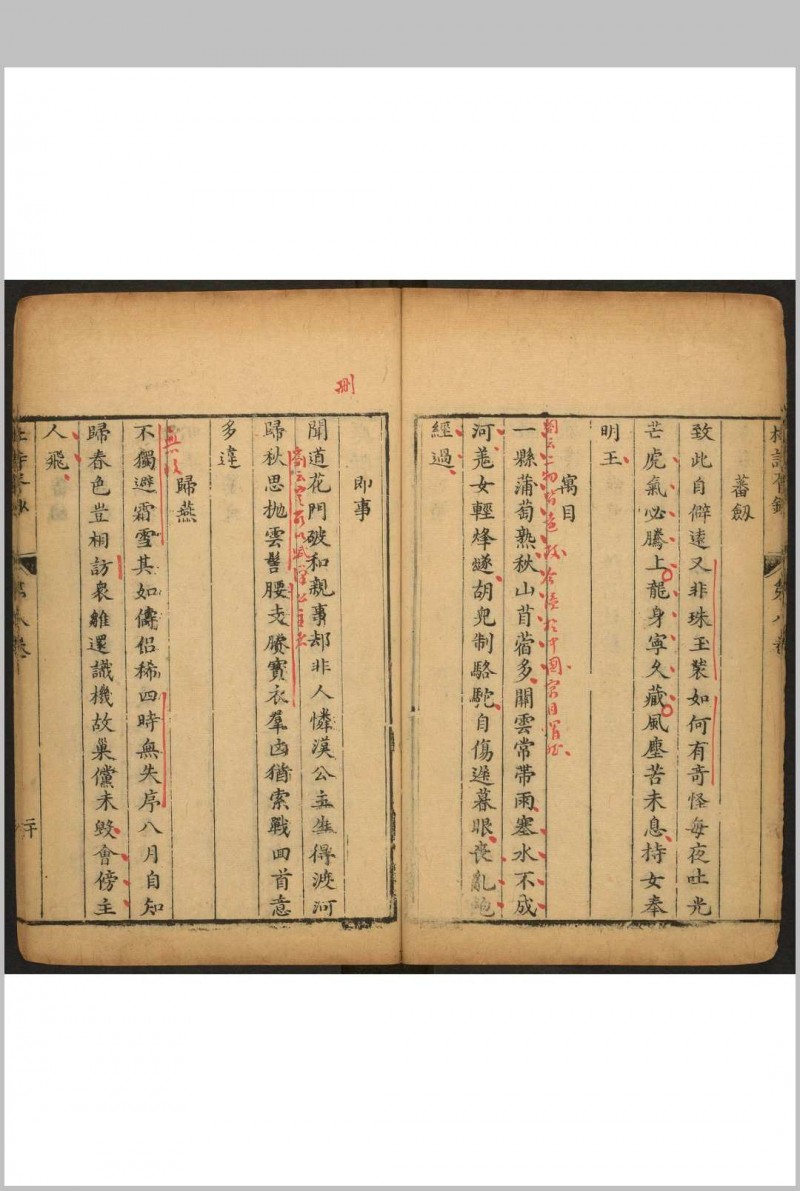 蕃劔
致此自僻遠又非珠玉裝如何有竒怪每夜吐光
芒虎氣必騰上龍身寧久藏風塵苦未息持女奉
明王
寓目
一縣蒲萄熟秋山苜蓿多關雲常帶雨塞水不成
河羗女輕烽燧胡兒制駱駝自傷遲暮眼喪亂飽
經過
第八卷
刪
即事
聞道花門破和親事却非人憐漢公主生得渡河
歸秋思拋雲髻腰支賸寳衣羣凶猶索戰囬首意
多違
歸燕
不獨避霜雪其如儔侶稀四時無失序八月自知
歸春色豈相訪衆雛還識機故巢儻未毀會傍主
人飛
第八卷
二十